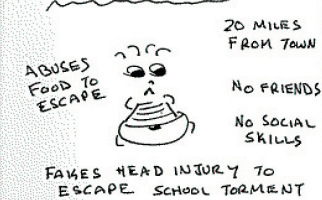 20 MILES
FROM TOWN
ABUSES
FOOD TO
ESCAPE
NO FRIENDS
NO SOCIAL
SKILLS
FAKES HEAD INJURY TO
ESCAPE SCHOOL TORMENT